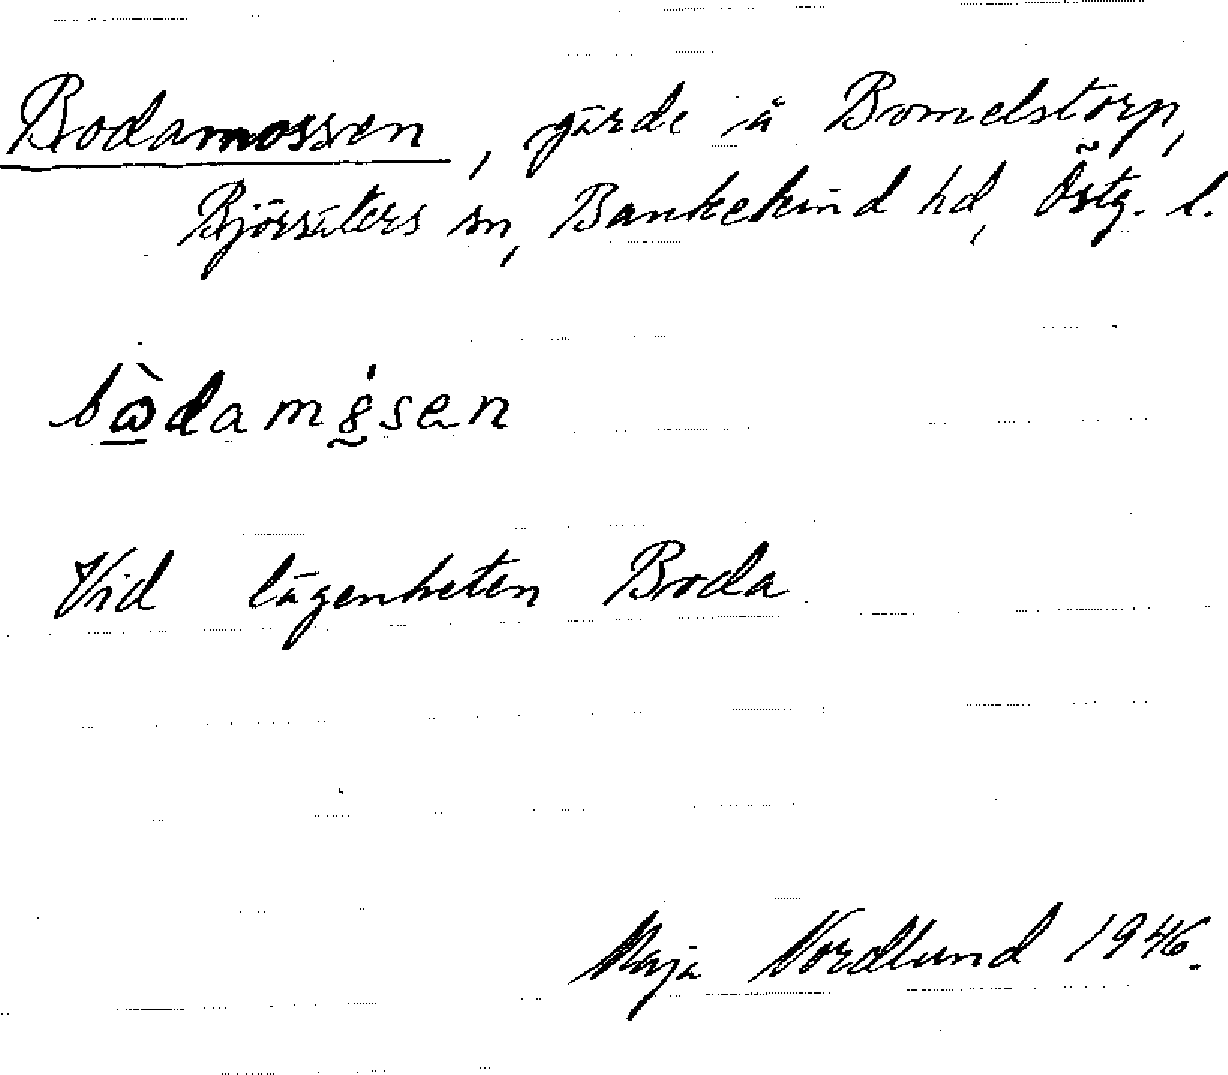 Bodamossen, gärde å Bomelstorp,
Björsäters sn, Bankekind hd, Östg. l.
Vid lägenheten Boda.
Maja Nordlund 1946.